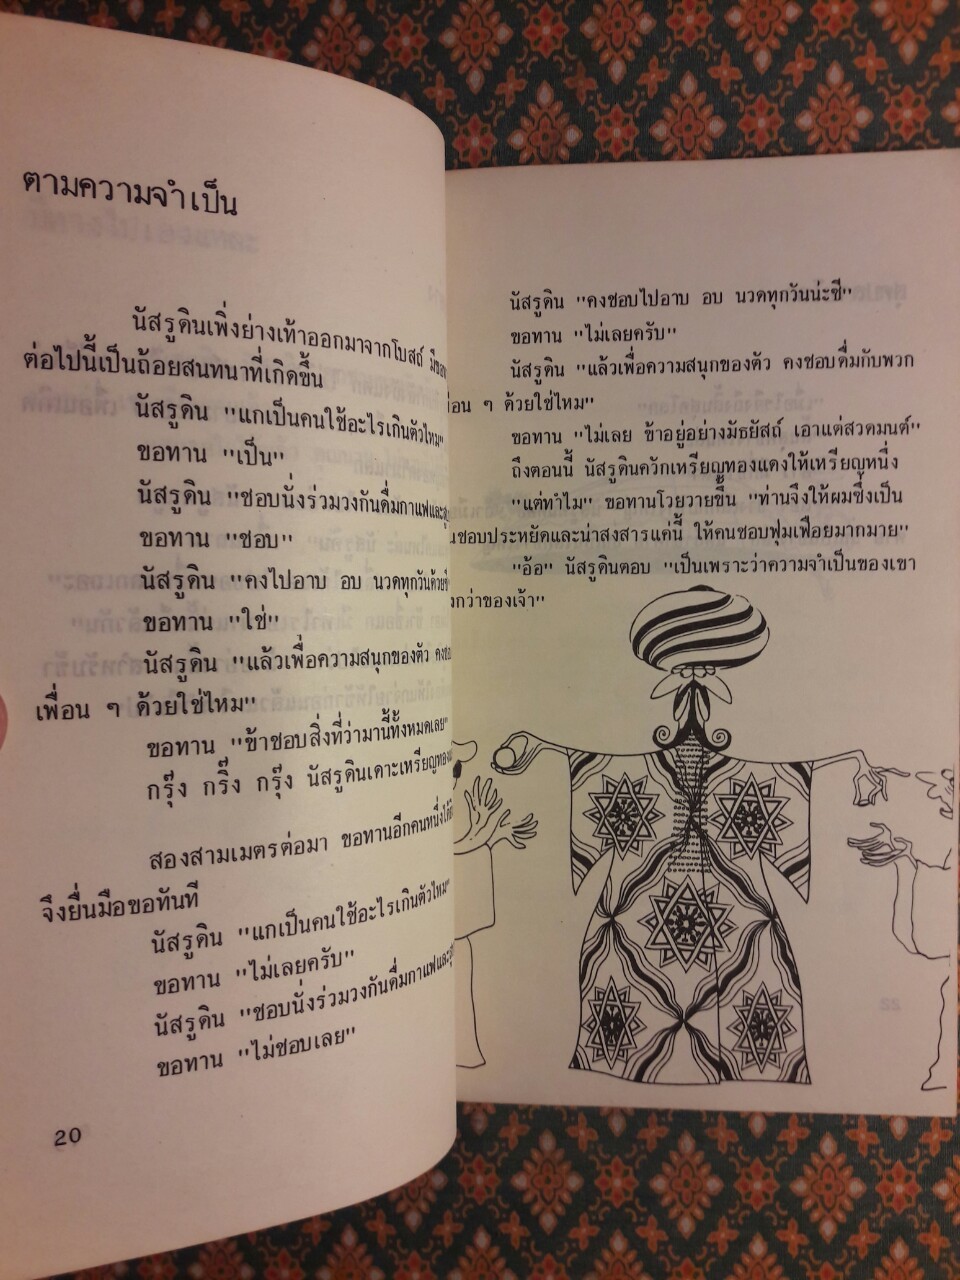 ตามความจำเป็น
นัสรูดินเพิ่งย่างเท้าออกมาจากโบสถ์ มีขอทาน
ต่อไปนี้เป็นถ้อยสนทนาที่เกิดขึ้น
นัสรูดิน "แกเป็นคนใช้อะไรเกินตัวไหม"
ขอทาน "เป็น"
นัสรูดิน "ชอบนั่งร่วมวงกันดื่มกาแฟและ
ขอทาน "ชอบ"
นัสรูดิน "คงไปอาบ อบ นวดทุกวันด้วย
ขอทาน "ใช่"
นัสรูดิน "แล้วเพื่อความสนุกของตัว
เพื่อน ๆ ด้วยใช่ไหม"
ขอทาน "ข้าชอบสิ่งที่ว่ามานี้ทั้งหมดเลย"
กรุ๊ง กริ๊ง กรุ๊ง นัสรูดินเคาะเหรียญ
สองสามเมตรต่อมา ขอทานอีกคนหนึ่ง
จึงยื่นมือขอทันที
นัสรูดิน "แกเป็นคนใช้อะไรเกินตัวไหม"
ขอทาน "ไม่เลยครับ"
นัสรูดิน "ชอบนั่งร่วมวงกันดื่มกาแฟและ
ขอทาน "ไม่ชอบเลย"
20
นัสรูดิน "คงชอบไปอาบ อบ นวดทุกวันน่ะซี"
ขอทาน "ไม่เลยครับ"
นัสรูดิน "แล้วเพื่อความสนุกของตัว คงชอบดื่มกับพวก
ๆ ด้วยใช่ไหม"
ขอทาน "ไม่เลย ข้าอยู่อย่างมัธยัสถ์ เอาแต่สวดมนต์"
ถึงตอนนี้ นัสรูดินควักเหรียญทองแดงให้เหรียญหนึ่ง
"แต่ทำไม" ขอทานโวยวายขึ้น "ท่านจึงให้ผมซึ่งเป็น
ชอบประหยัดและน่าสงสารแค่นี้ ให้คนชอบฟุ่มเฟือยมากมาย"
"อ้อ" นัสรูดินตอบ "เป็นเพราะว่าความจำเป็นของเขา
กว่าของเจ้า"